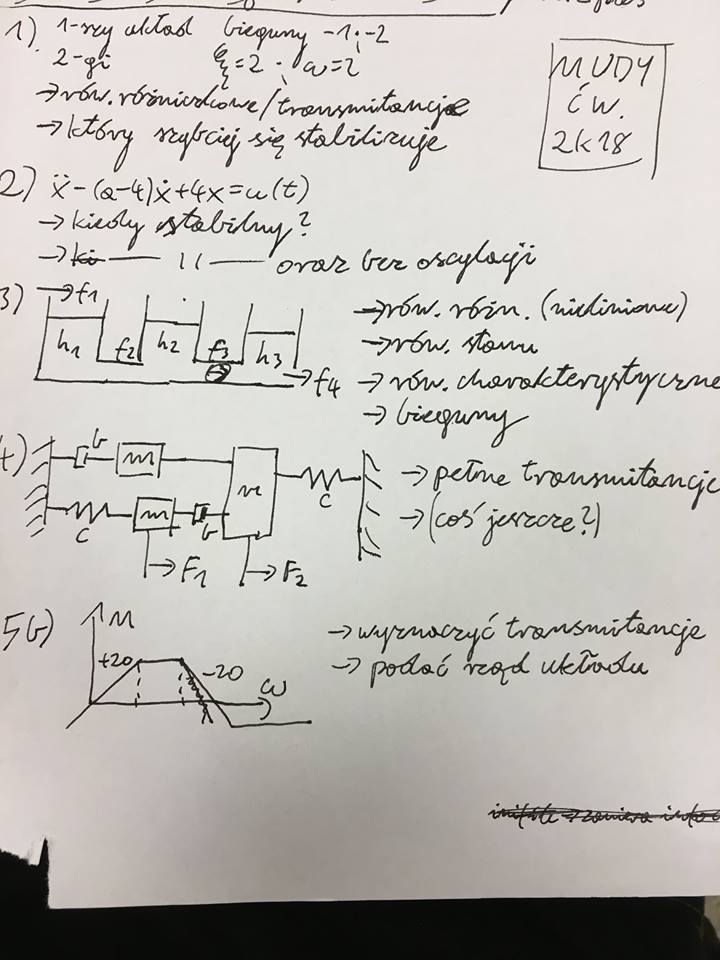 1) 1-szy układ bieguny -1; -2
2-gi ξ=2; ω=2
→ rów. różniczkowe/transmitancje
→ który szybciej się stabilizuje
MUDY
ĆW.
2k18
2) ẍ-(a-4)ẋ+4x=u(t)
→ kiedy stabilny?
→ —— 11 —— oraz bez oscylacji
3) → f1
h1 f2 h2 f3 h3
→ f4
→ rów. różn. (nieliniowe)
→ rów. stanu
→ rów. charakterystyczne
→ bieguny
4) b m m c
c m b
→ F1 → F2
→ pełne transmitancje
→ (coś jeszcze?)
5b) M
+20 -20 ω
→ wyznaczyć transmitancje
→ podać rząd układu